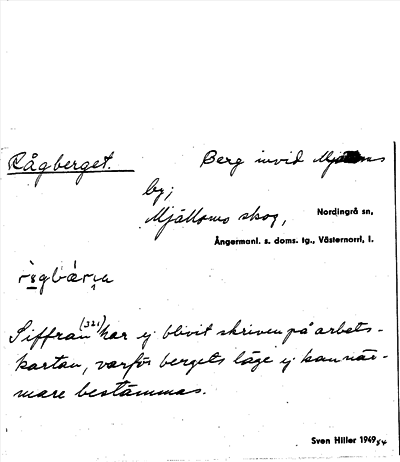 Rågberget.
Berg invid Mjälloms
by;
Mjälloms skog,
Nordingrå sn,
Ångermanl. s. doms. tg., Västernorrl. l.
Siffran (321) har ej blivit skriven på arbets-
kartan, varför bergets läge ej kan när-
mare bestämmas.
Sven Hiller 1949